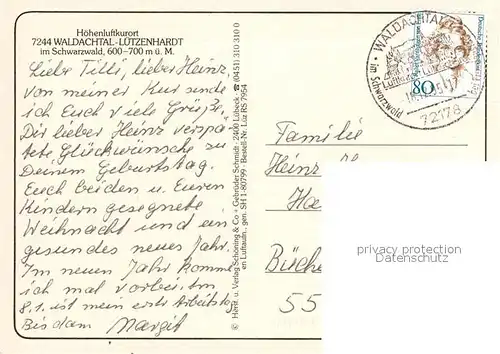 Höhenluftkurort
7244 WALDACHTAL-LÜTZENHARDT
im Schwarzwald, 600–700 m ü. M.
Liebe Tilli, lieber Heinz,
von meiner Kur sende
ich Euch viele Grüße.
Dir lieber Heinz verspä-
tete Glückwünsche zu
Deinem Geburtstag.
Euch beiden u. Euren
Kindern gesegnete
Weihnacht und ein
gesundes neues Jahr.
Im neuen Jahr komme
ich mal vorbei. Am
8.1. ist mein erster Arbeitstag
Bis dann Margit
© Herst. u. Verlag Schöning & Co + Gebrüder Schmidt · 2400 Lübeck · ☎ (0451) 310 310 0
en Luftaufn., gen. SH 1-80799 · Bestell-Nr. Lüz RS 7954
WALDACHTAL
im Schwarzwald
72178
80
Familie
Heinz
Ha
Büche
55
privacy protection
Datenschutz